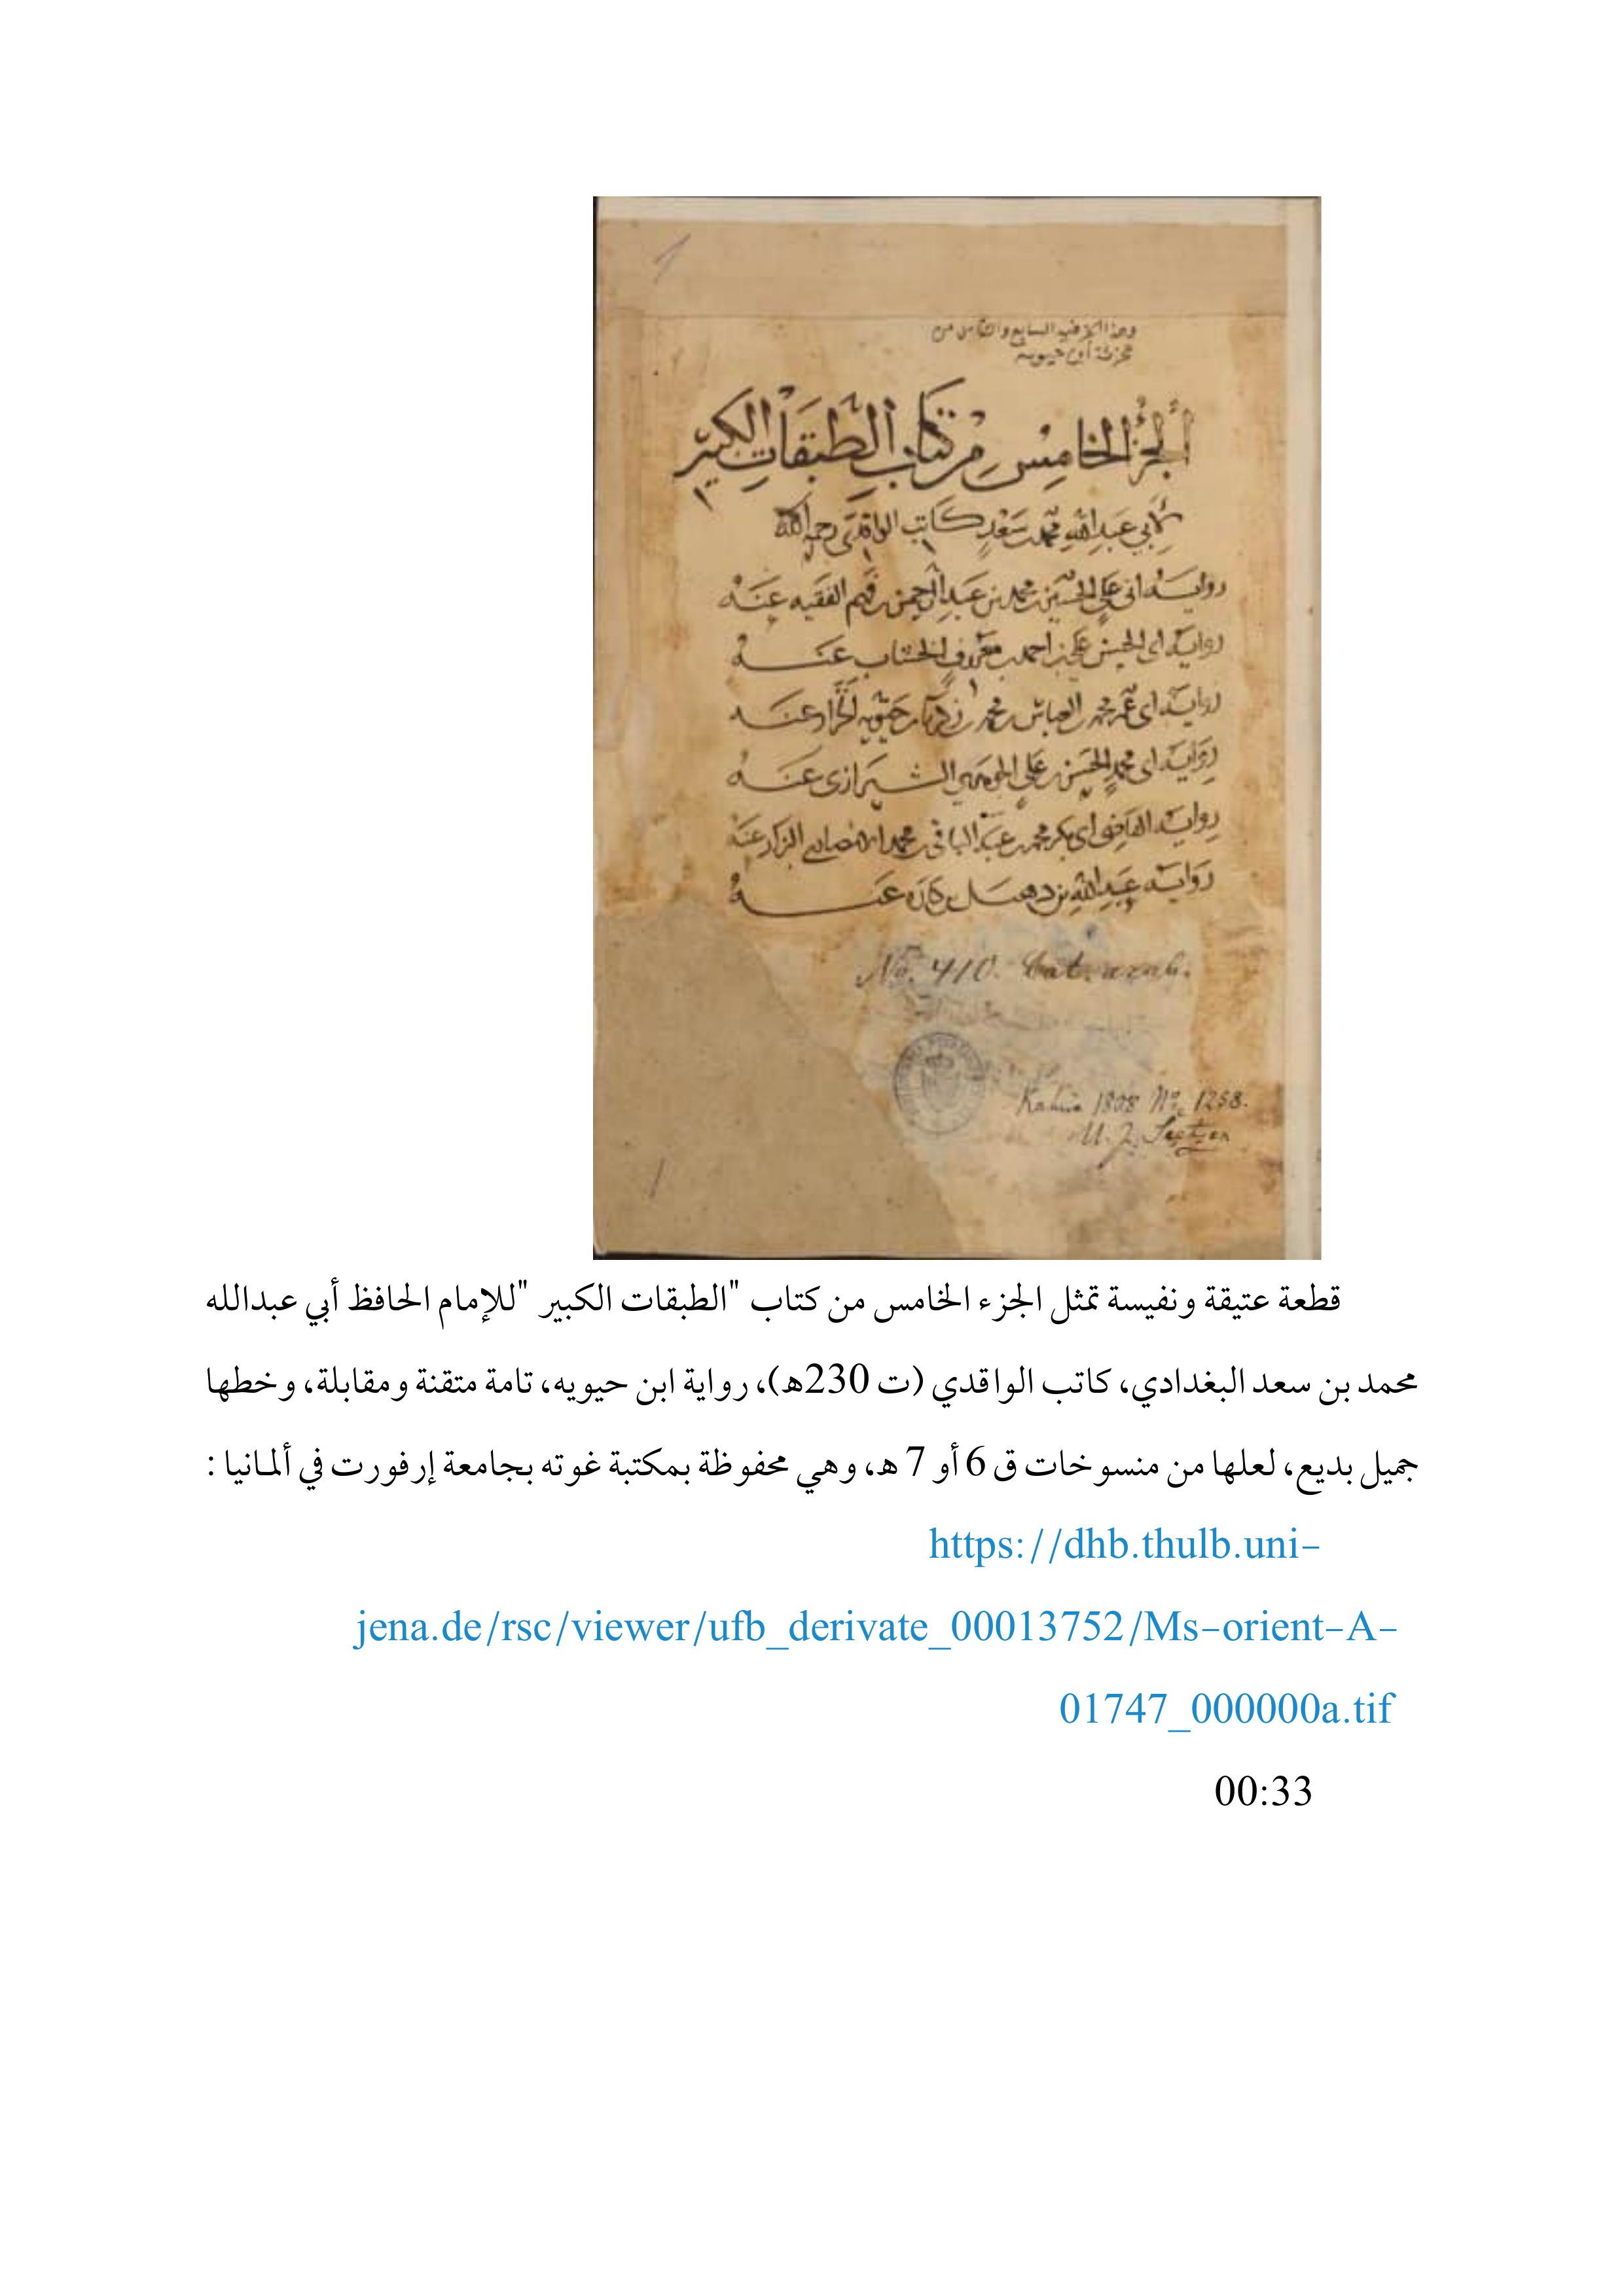 وهذا الجزء فيه السابع والثامن من
تجزئة ابن حيويه
الجُزْءُ الخَامِسُ مِنْ كتَابِ الطَّبَقَاتِ الكَبِيْر
لِأَبِي عَبدِ اللهِ مُحَمَّد بن سَعْدٍ كَاتِبِ الواقديّ رحمه الله
روايـة ابي عَلي الحسَين بن محمد بن عَبدِ الرَّحمن بن فَهم الفقيه عَنـهُ
روايـة ابي الحسن احمد بن معَروفٍ الخشاب عَنـهُ
روايـة ابي عُمر محمد بن العباس بن محمد بن زكريا بن حَيّويه الخزاز عنـهُ
رِوَايَة ابي محمدٍ الحَسَن بن عَلي الجوهَري الشيرازي عَنـهُ
رِوايـة القاضِي ابي بكر محمد بن عَبد الباقي بن محمد الانصاري البزاز عَنهُ
رِوَايـة عَبدِ اللهِ بن دهبل بن كَاره عَنـهُ
No. 410. Cat. arab.
Kahira 1808 No. 1258.
U. J. Seetzen
قطعة عتيقة ونفيسة تمثل الجزء الخامس من كتاب "الطبقات الكبير "للإمام الحافظ أبي عبدالله
محمد بن سعد البغدادي، كاتب الواقدي (ت 230هـ)، رواية ابن حيويه، تامة متقنة ومقابلة، وخطها
جميل بديع، لعلها من منسوخات ق 6 أو 7 هـ، وهي محفوظة بمكتبة غوته بجامعة إرفورت في ألمـانيا :
https://dhb.thulb.uni-
jena.de/rsc/viewer/ufb_derivate_00013752/Ms-orient-A-
01747_000000a.tif
00:33